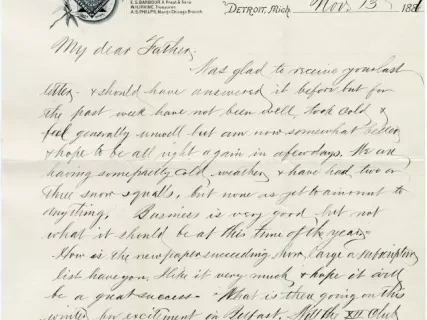 E. S. BARBOUR
Treasurer
Mangr. Chicago Branch
DETROIT, Mich. Nov. 13 188
My dear Father,
Was glad to receive your last
letter - & should have answered it before but for
the past week have not been well, took cold &
feel generally unwell but am now somewhat better
& hope to be all right again in a few days. We are
having some pretty cold weather & have had two or
three snow squalls, but none as yet to amount to
anything. Business is very good but not
what it should be at this time of the year -
How is the new paper succeeding & how large a subscription
list have you. I like it very much & hope it will
be a great success - What is there going on this
winter for excitement in Belfast. Will the XII Club